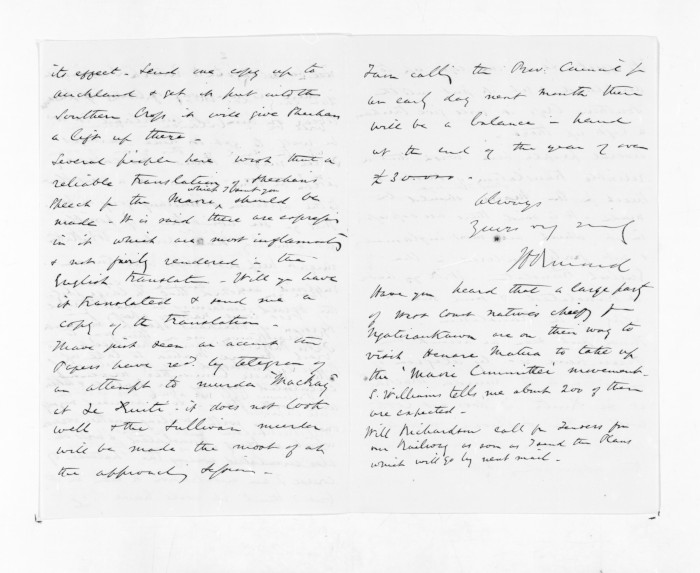 its effect - Send one copy up to
Auckland & get it put into the
Southern Cross. it will give Sheehan
a lift up there -
Several people here wish that a
reliable translation of Sheehan's
Speech for the Maori which I sent you should be
made - It is said there are expressions
in it which are most inflamatory
& not fairly rendered in the
English translation - Will you have
it translated & send me a
copy of the translation -
I have just seen an account the
Papers have recd. by telegram of
an attempt to murder "Mackay"
at Te Kuiti - it does not look
well & the Sullivan murder
will be made the most of at
the approaching Session -
I am calling the Prov. Council for
an early day next month there
will be a balance in hand
at the end of the year of over
£30.000 -
Always
Yours very truly
JD Ormond
Have you heard that a large party
of West Coast natives chiefly from
Ngatiraukawa are on their way to
visit Henare Matua to take up
the 'Maori Committee' movement -
S. Williams tells me about 200 of them
are expected -
Will Richardson call for Tenders for
our Railway as soon as I send the Plans
which will go by next mail -